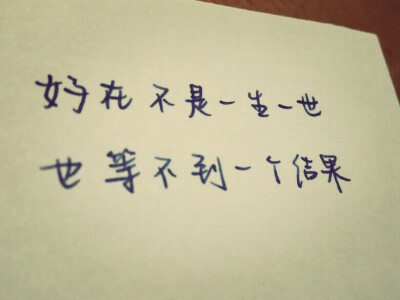 好在不是一生一世
也等不到一个结果